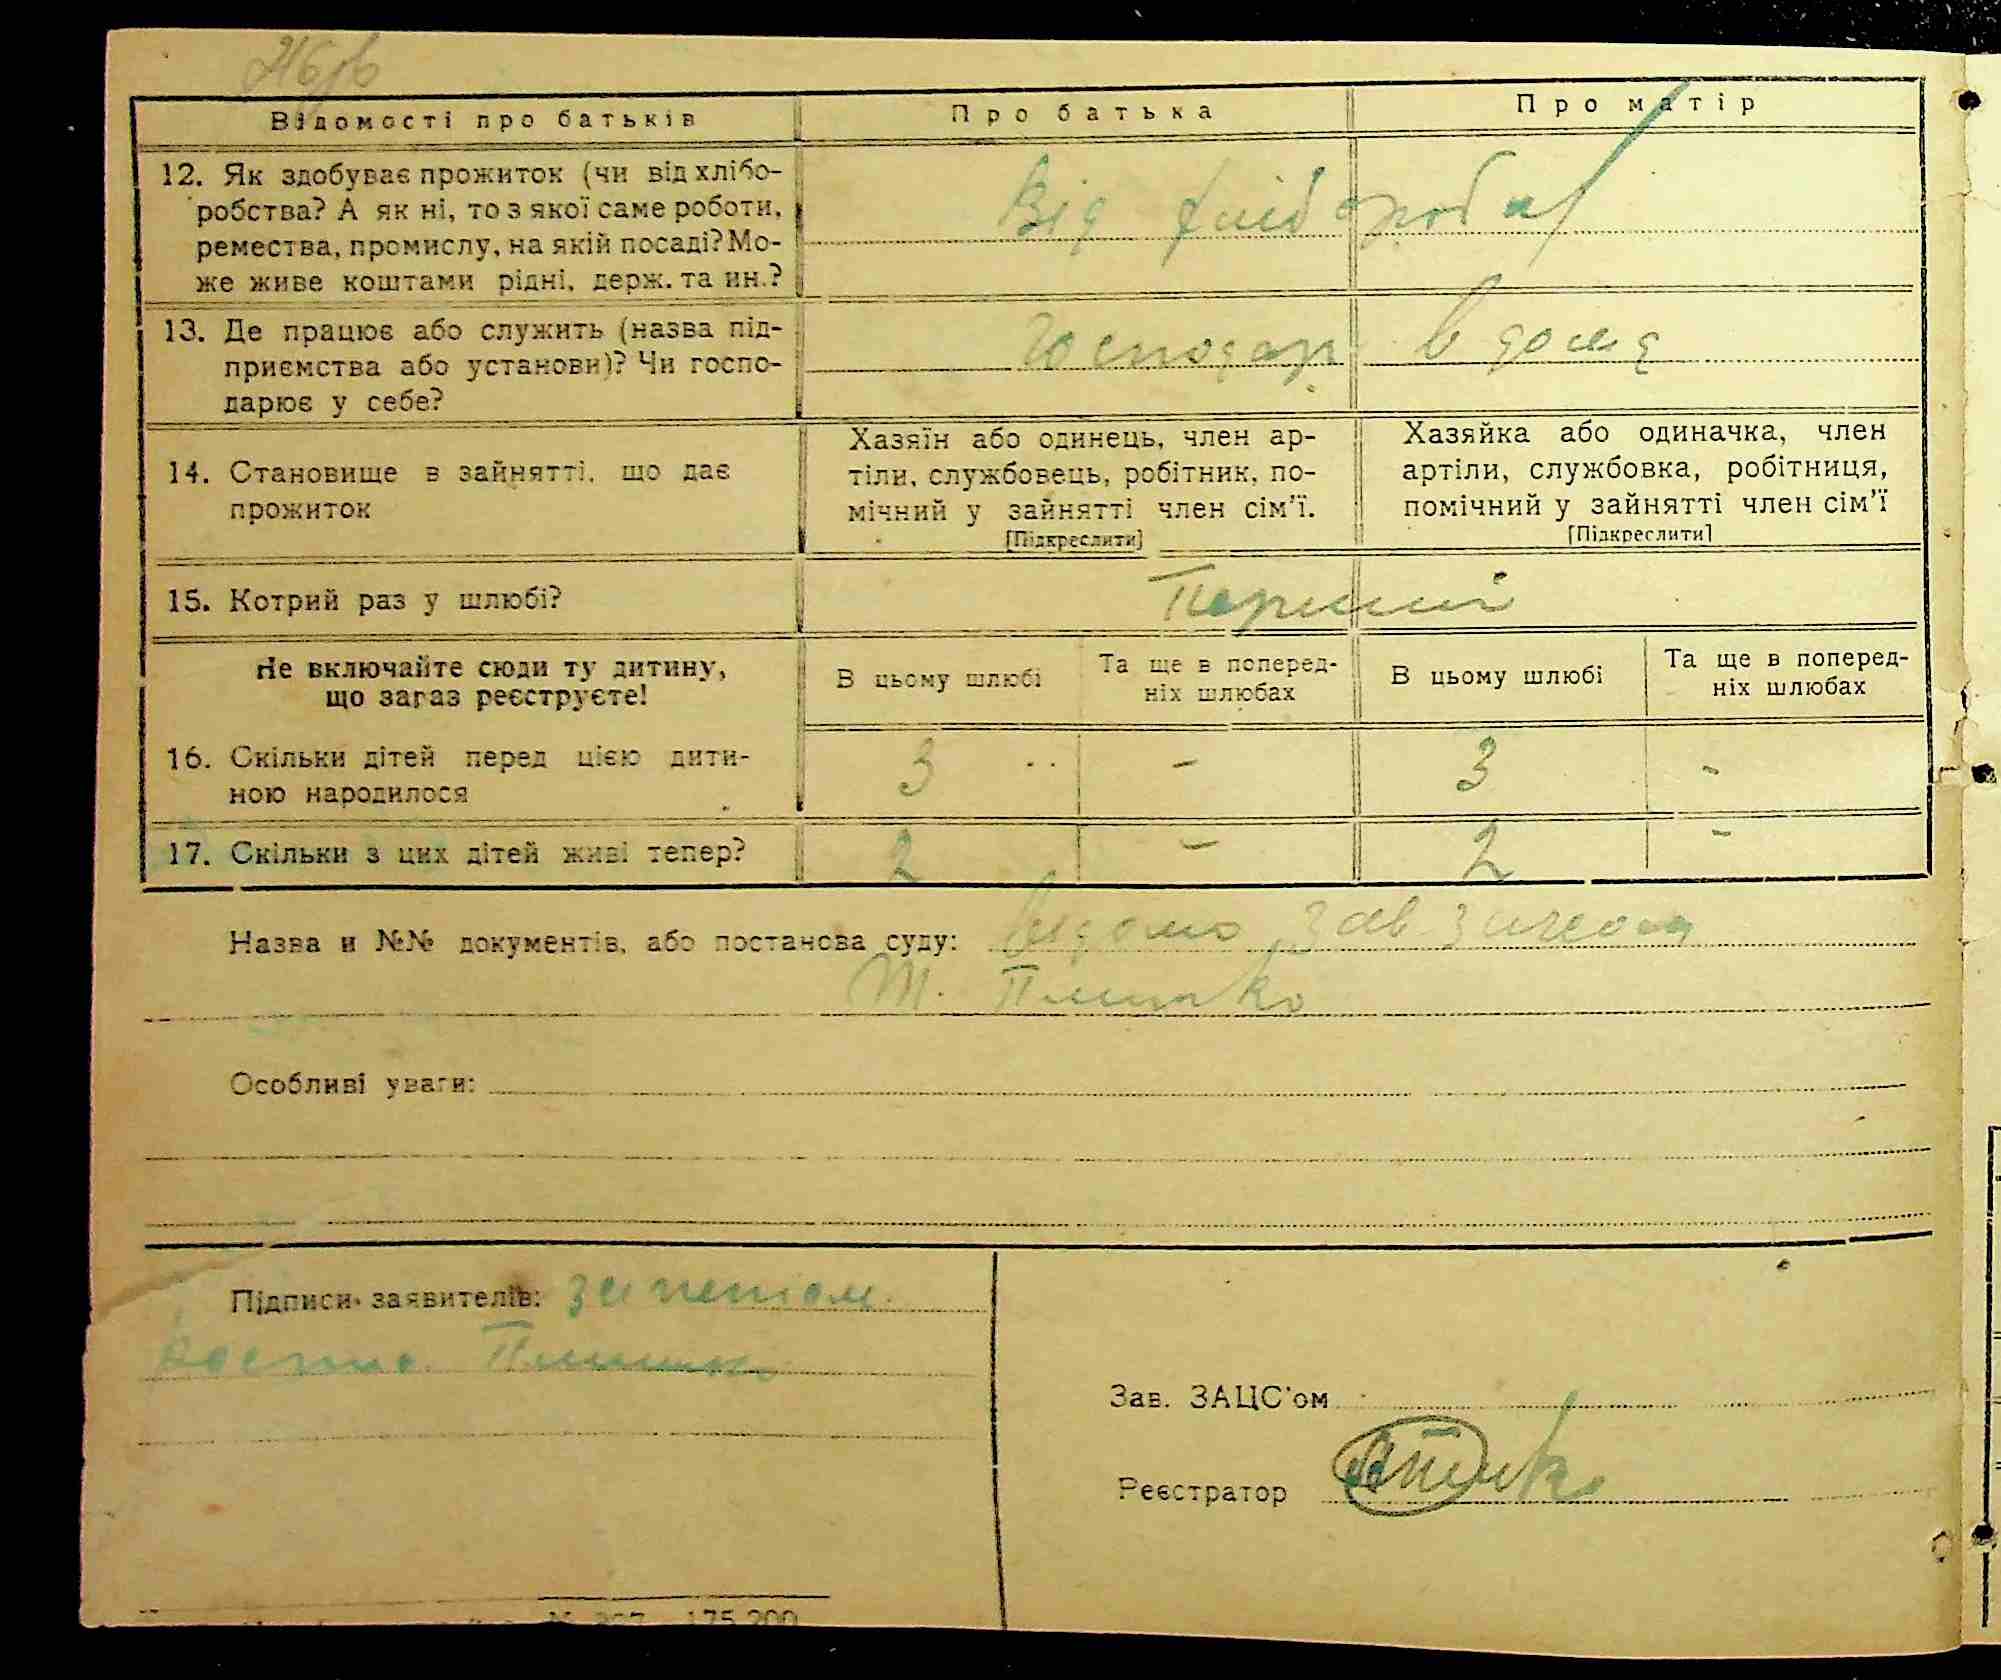 Відомості про батьків
Про батька
Про матір
12. Як здобуває прожиток (чи від хлібо-
робства? А як ні, то з якої саме роботи,
ремества, промислу, на якій посаді? Мо-
же живе коштами рідні, держ. та ин.?
Від хліборобст
13. Де працює або служить (назва під-
приємства або установи)? Чи госпо-
дарює у себе?
Господар в дома
14. Становище в зайнятті, що дає
прожиток
Хазяїн або одинець, член ар-
тіли, службовець, робітник, по-
мічний у зайнятті член сім'ї.
[Підкреслити]
Хазяйка або одиначка, член
артіли, службовка, робітниця,
помічний у зайнятті член сім'ї
[Підкреслити]
15. Котрий раз у шлюбі?
Перший
Не включайте сюди ту дитину,
що загаз реєструєте!
В цьому шлюбі
Та ще в поперед-
ніх шлюбах
В цьому шлюбі
Та ще в поперед-
ніх шлюбах
16. Скільки дітей перед цією дити-
ною народилося
3 - 3 -
17. Скільки з цих дітей живі тепер?
2 - 2 -
Назва и №№ документів, або постанова суду: Відомо зав
Особливі уваги:
Підписи заявителів:
Зав. ЗАЦС'ом
Реєстратор
175.200